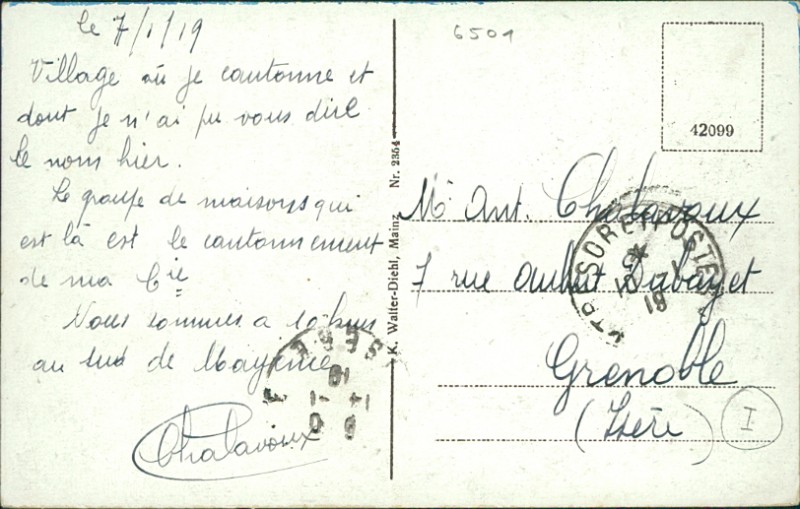 le 7/1/19
Village où je cantonne et
dont je n'ai pu vous dire
le nom hier.
Le groupe de maisons qui
est là est le cantonnement
de ma Cie
Nous sommes à 10 kms
au sud de Mayence
Chalavoux
K. Walter-Diehl, Mainz Nr. 2354
6501
42099
Mr Ant. Chalavoux
7 rue Aubert Dubayet
Grenoble
(Isère)
I
TRESOR ET POSTES
ISERE